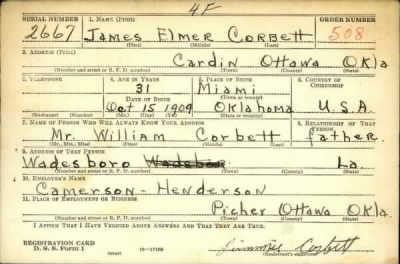 4F
SERIAL NUMBER 1. NAME (Print) ORDER NUMBER
2667 James Elmer Corbett 508
(First) (Middle) (Last)
2. ADDRESS (Print)
Cardin Ottawa Okla
(Number and street or R. F. D. number) (Town) (County) (State)
3. TELEPHONE 4. AGE IN YEARS 5. PLACE OF BIRTH 6. COUNTRY OF CITIZENSHIP
31 Miami
DATE OF BIRTH (Town or county)
Oct 15 1909 Oklahoma U.S.A.
(Exchange) (Number) (Mo.) (Day) (Yr.) (State or country)
7. NAME OF PERSON WHO WILL ALWAYS KNOW YOUR ADDRESS 8. RELATIONSHIP OF THAT PERSON
Mr. William Corbett father
(Mr., Mrs., Miss) (First) (Middle) (Last)
9. ADDRESS OF THAT PERSON
Wadesboro La.
(Number and street or R. F. D. number) (Town) (County) (State)
10. EMPLOYER'S NAME
Camerson-Henderson
11. PLACE OF EMPLOYMENT OR BUSINESS
Picher Ottawa Okla.
(Number and street or R. F. D. number) (Town) (County) (State)
I AFFIRM THAT I HAVE VERIFIED ABOVE ANSWERS AND THAT THEY ARE TRUE.
REGISTRATION CARD
D. S. S. Form 1 (over) 16-17105 Jimmie Corbett
(Registrant's signature)